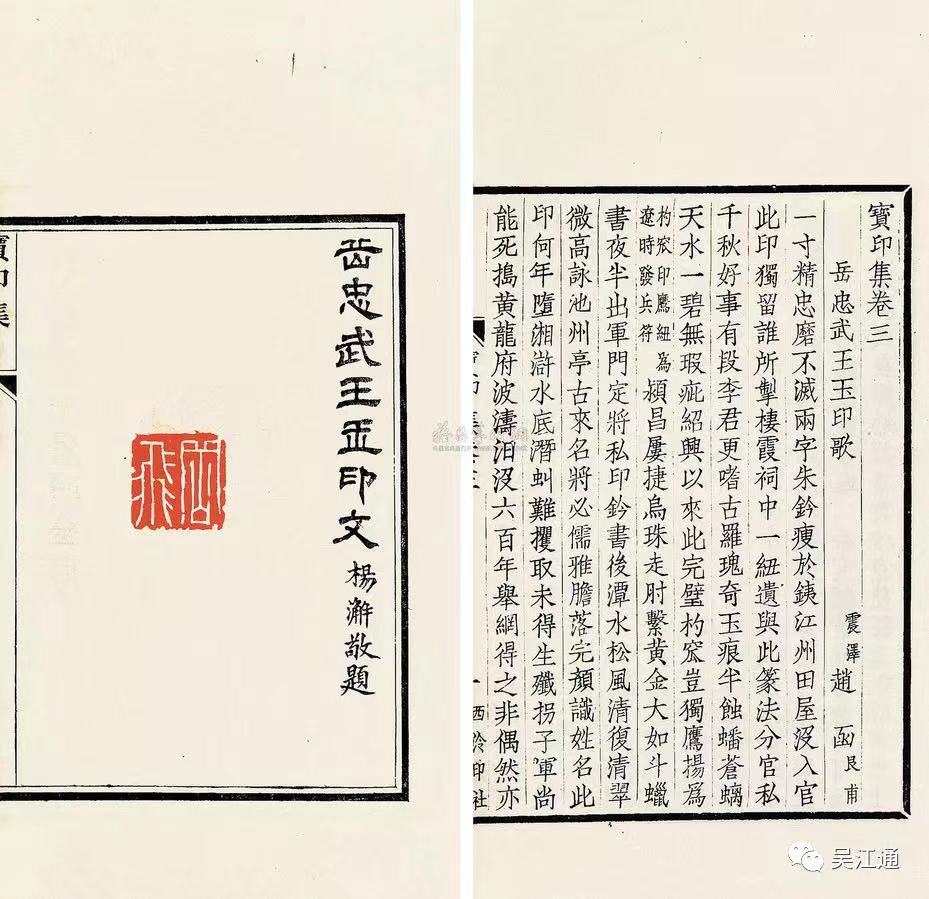 寶印集卷三
岳忠武王玉印歌
震澤趙函艮甫
一寸精忠磨不滅兩字朱鈐瘦於銕江州田屋沒入官
此印獨留誰所掣棲霞祠中一紐遺與此篆法分官私
千秋好事有段李君更嗜古羅瑰奇玉痕半蝕蟠蒼螭
天水一碧無瑕疵紹興以來此完璧杓窊豈獨鷹揚為
杓窊印鷹紐為
遼時發兵符
潁昌屢捷烏珠走肘繫黃金大如斗蠟
書夜半出軍門定將私印鈐書後潭水松風清復清翠
微高詠池州亭古來名將必儒雅膽落完顏識姓名此
印何年墮湘滸水底潛虯難攫取未得生殲拐子軍尚
能死搗黃龍府波濤汨沒六百年舉網得之非偶然亦
一
西泠印社
岳忠武王玉印文
楊澥敬題
岳飛
寶印集
吴江通